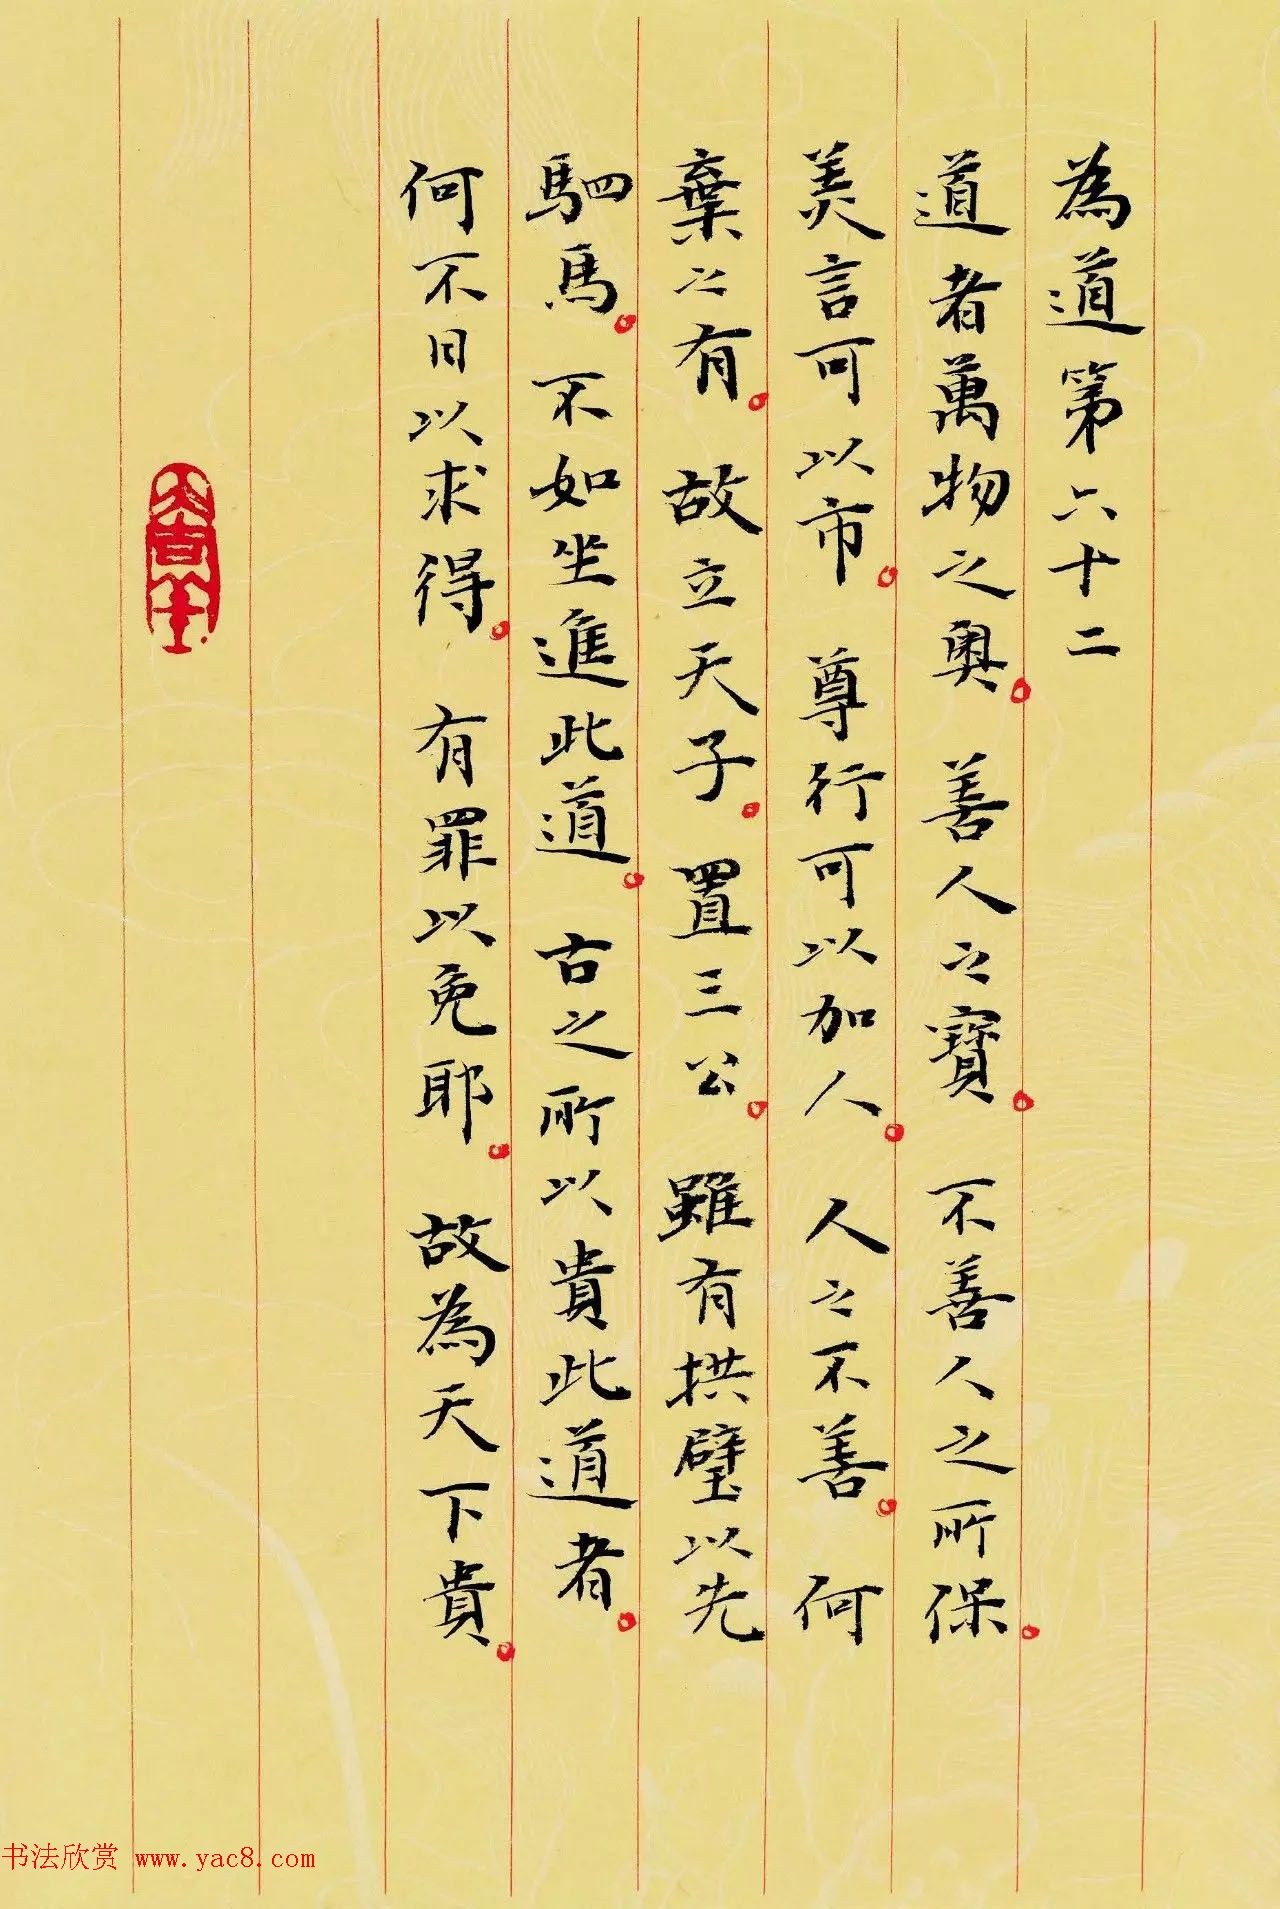 為道第六十二
道者萬物之奧。善人之寶。不善人之所保。
美言可以市。尊行可以加人。人之不善。何
棄之有。故立天子。置三公。雖有拱璧以先
駟馬。不如坐進此道。古之所以貴此道者。
何不日以求得。有罪以免耶。故為天下貴。
书法欣赏 www.yac8.com